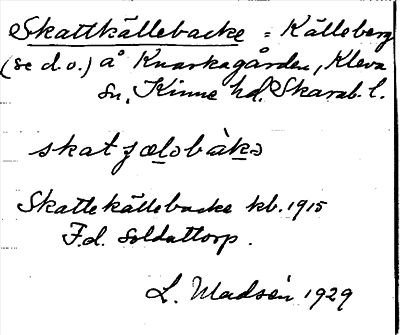 Skattkällebacke = Källeberg
(se d.o.) å Knarkagården, Kleva
sn, Kinne hd, Skarab. l.
skatʃæləbàkə
Skattekällebacke kb. 1915
F.d. soldattorp.
L. Madsén 1929